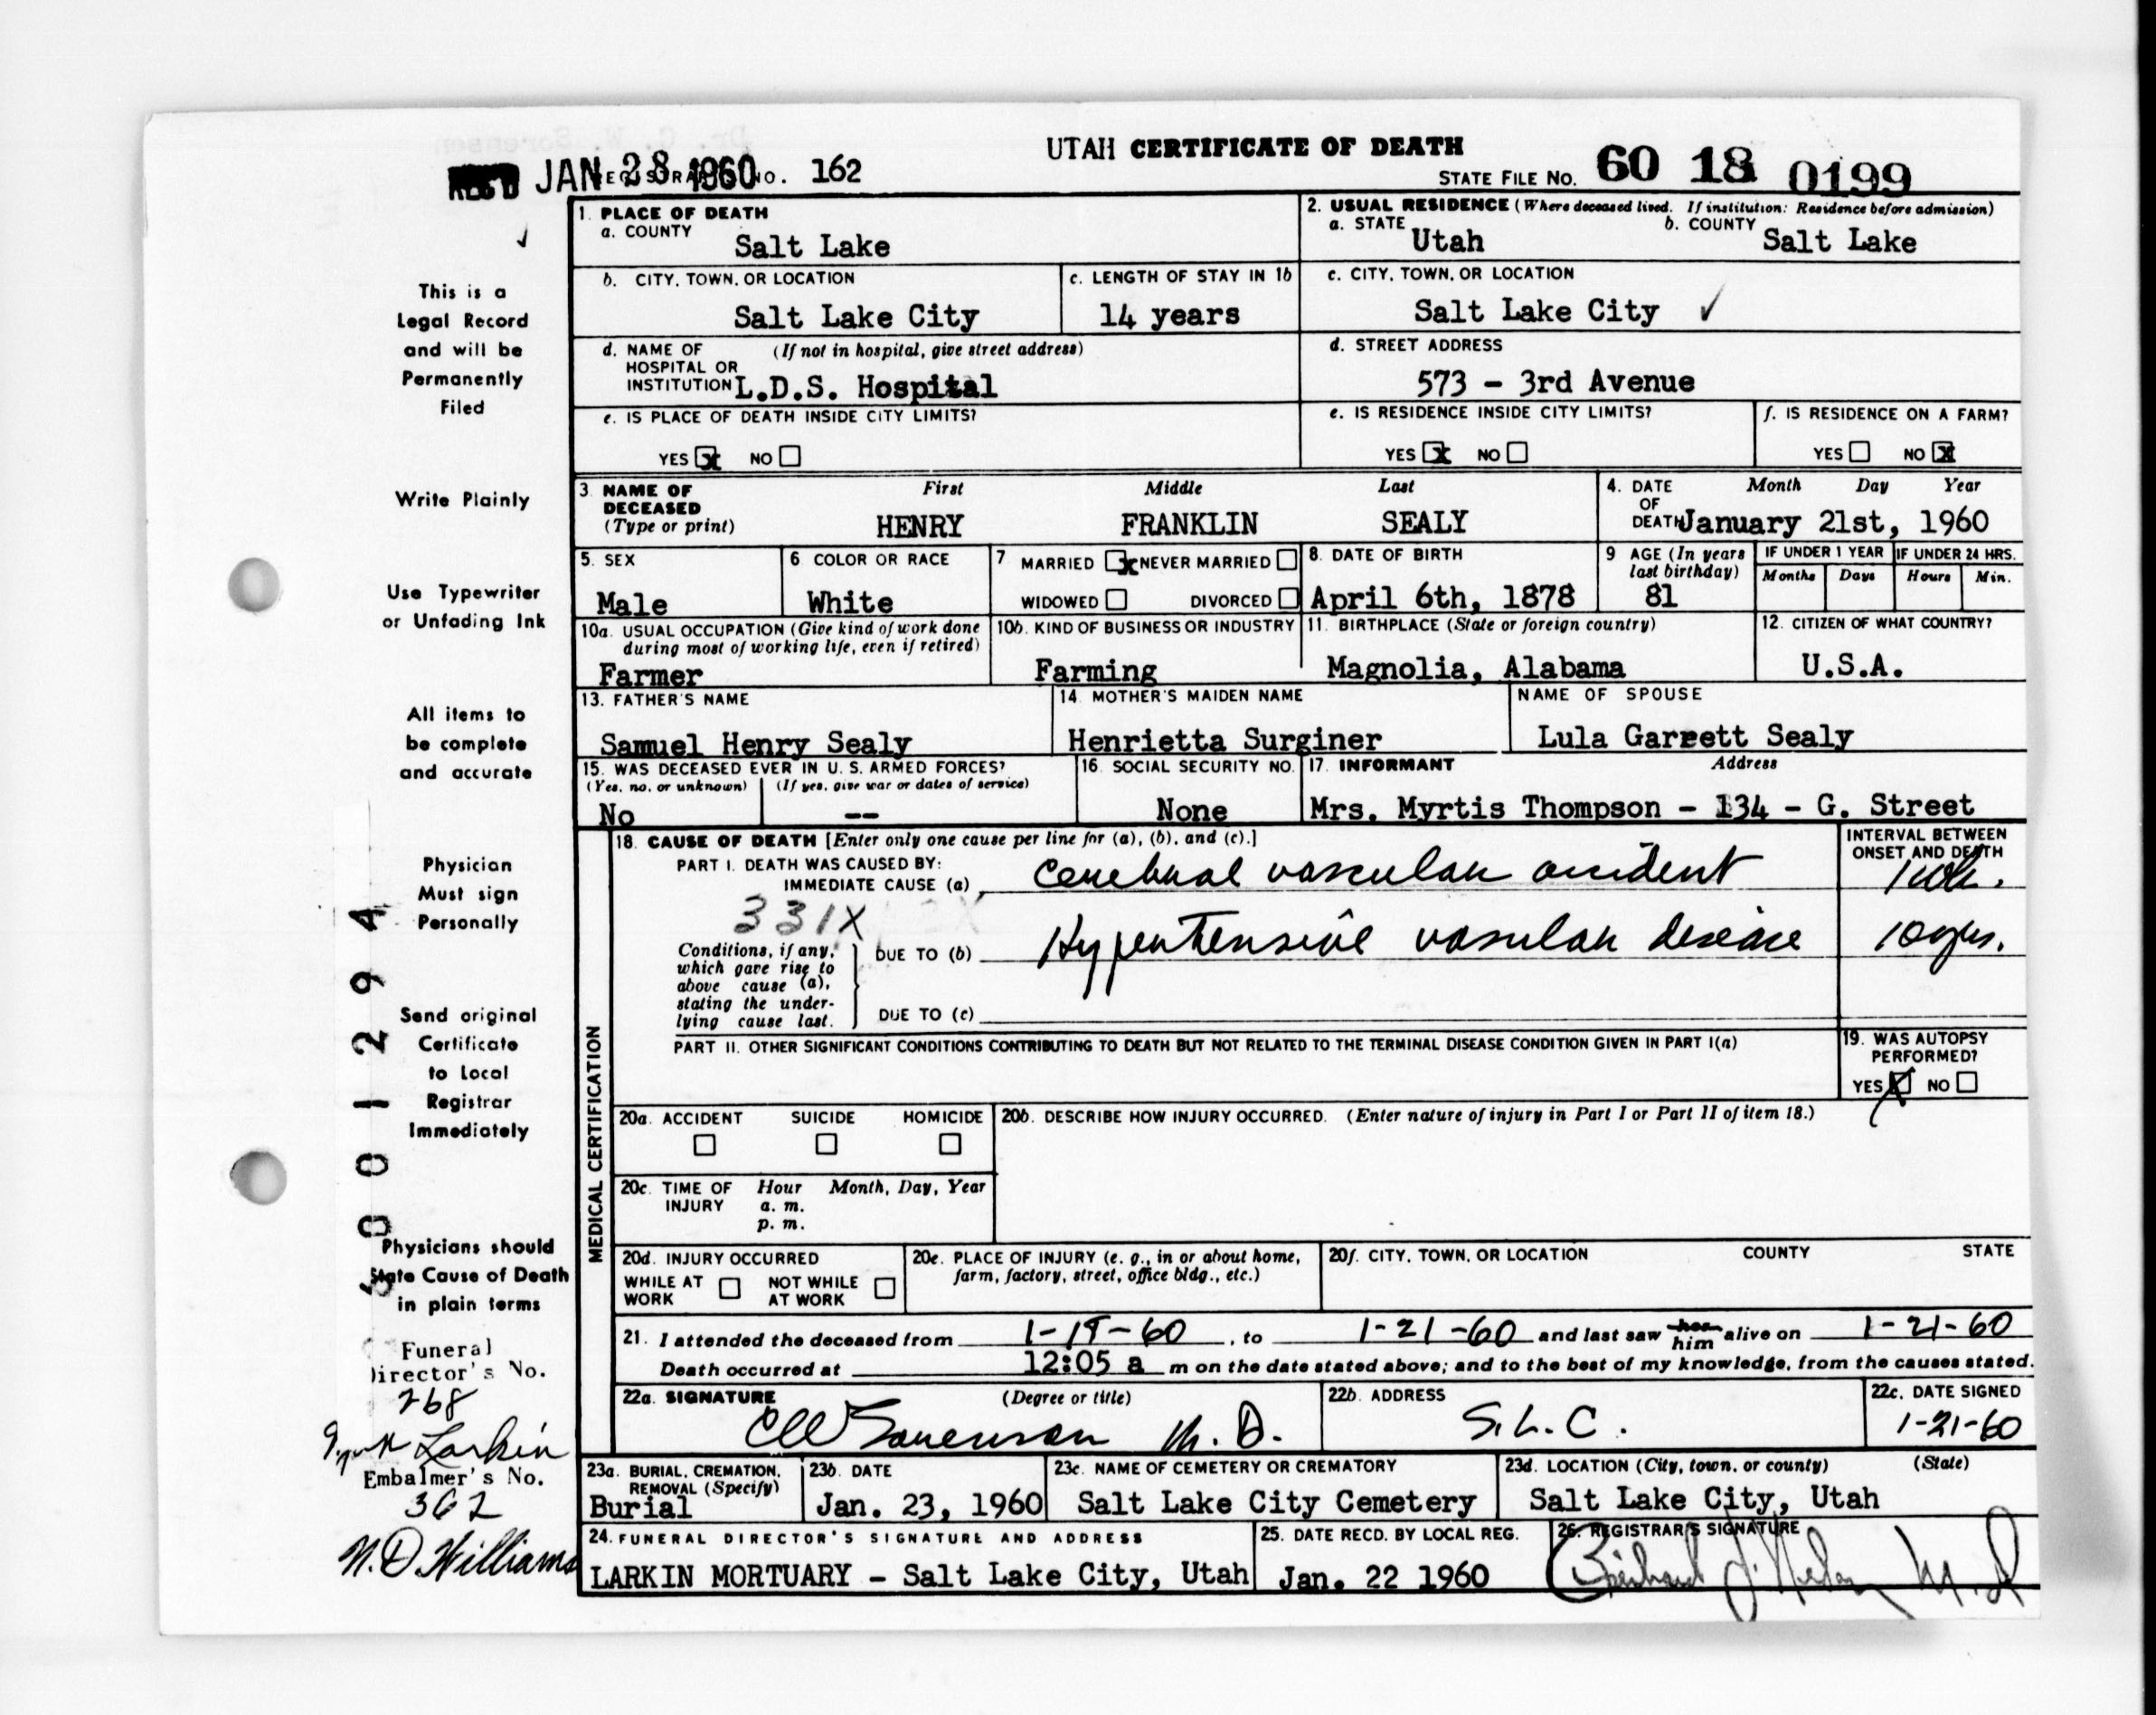 UTAH CERTIFICATE OF DEATH
REC'D JAN 28 1960 REGISTRAR'S NO. 162
STATE FILE NO. 60 18 0199
1. PLACE OF DEATH
a. COUNTY
Salt Lake
2. USUAL RESIDENCE (Where deceased lived. If institution: Residence before admission)
a. STATE Utah b. COUNTY Salt Lake
b. CITY, TOWN, OR LOCATION
Salt Lake City
c. LENGTH OF STAY IN 1b
14 years
c. CITY, TOWN, OR LOCATION
Salt Lake City ✓
d. NAME OF HOSPITAL OR INSTITUTION (If not in hospital, give street address)
L.D.S. Hospital
d. STREET ADDRESS
573 - 3rd Avenue
e. IS PLACE OF DEATH INSIDE CITY LIMITS?
YES x NO
e. IS RESIDENCE INSIDE CITY LIMITS?
YES x NO
f. IS RESIDENCE ON A FARM?
YES NO x
3. NAME OF DECEASED (Type or print)
First Middle Last
HENRY FRANKLIN SEALY
4. DATE OF DEATH Month Day Year
January 21st, 1960
5. SEX
Male
6 COLOR OR RACE
White
7 MARRIED x NEVER MARRIED
WIDOWED DIVORCED
8. DATE OF BIRTH
April 6th, 1878
9 AGE (In years last birthday)
81
IF UNDER 1 YEAR
Months Days
IF UNDER 24 HRS.
Hours Min.
10a. USUAL OCCUPATION (Give kind of work done during most of working life, even if retired)
Farmer
10b. KIND OF BUSINESS OR INDUSTRY
Farming
11. BIRTHPLACE (State or foreign country)
Magnolia, Alabama
12. CITIZEN OF WHAT COUNTRY?
U.S.A.
13. FATHER'S NAME
Samuel Henry Sealy
14. MOTHER'S MAIDEN NAME
Henrietta Surginer
NAME OF SPOUSE
Lula Garrett Sealy
15. WAS DECEASED EVER IN U. S. ARMED FORCES?
(Yes, no, or unknown) (If yes, give war or dates of service)
No --
16. SOCIAL SECURITY NO.
None
17. INFORMANT Address
Mrs. Myrtis Thompson - 134 - G. Street
MEDICAL CERTIFICATION
18. CAUSE OF DEATH [Enter only one cause per line for (a), (b), and (c).]
INTERVAL BETWEEN ONSET AND DEATH
PART I. DEATH WAS CAUSED BY:
IMMEDIATE CAUSE (a) Cerebral vascular accident
331X
Conditions, if any, which gave rise to above cause (a), stating the underlying cause last.
DUE TO (b) Hypertensive vascular disease 10 yrs.
DUE TO (c)
PART II. OTHER SIGNIFICANT CONDITIONS CONTRIBUTING TO DEATH BUT NOT RELATED TO THE TERMINAL DISEASE CONDITION GIVEN IN PART I(a)
19. WAS AUTOPSY PERFORMED?
YES X NO
20a. ACCIDENT SUICIDE HOMICIDE
20b. DESCRIBE HOW INJURY OCCURRED. (Enter nature of injury in Part I or Part II of item 18.)
20c. TIME OF INJURY Hour Month, Day, Year
a. m.
p. m.
20d. INJURY OCCURRED
WHILE AT WORK NOT WHILE AT WORK
20e. PLACE OF INJURY (e. g., in or about home, farm, factory, street, office bldg., etc.)
20f. CITY, TOWN, OR LOCATION COUNTY STATE
21. I attended the deceased from 1-19-60, to 1-21-60 and last saw her him alive on 1-21-60
Death occurred at 12:05 a m on the date stated above; and to the best of my knowledge, from the causes stated.
22a. SIGNATURE (Degree or title)
CW Sorenson M.D.
22b. ADDRESS
S.L.C.
22c. DATE SIGNED
1-21-60
23a. BURIAL, CREMATION, REMOVAL (Specify)
Burial
23b. DATE
Jan. 23, 1960
23c. NAME OF CEMETERY OR CREMATORY
Salt Lake City Cemetery
23d. LOCATION (City, town, or county) (State)
Salt Lake City, Utah
24. FUNERAL DIRECTOR'S SIGNATURE AND ADDRESS
LARKIN MORTUARY - Salt Lake City, Utah
25. DATE RECD. BY LOCAL REG.
Jan. 22 1960
26. REGISTRAR'S SIGNATURE
This is a
Legal Record
and will be
Permanently
Filed
Write Plainly
Use Typewriter
or Unfading Ink
All items to
be complete
and accurate
Physician
Must sign
Personally
Send original
Certificate
to Local
Registrar
Immediately
Physicians should
State Cause of Death
in plain terms
Funeral
Director's No.
268
Larkin
Embalmer's No.
362
N.D. Williams